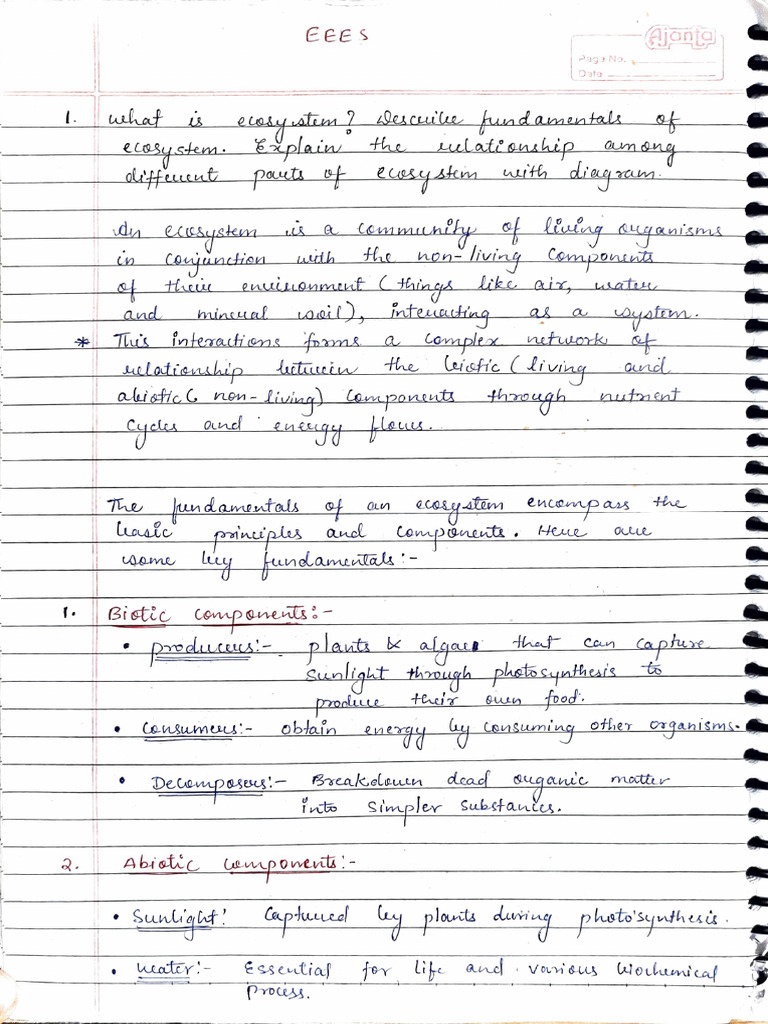 EEES
Ajanta
Page No.
Date
1. What is ecosystem? Describe fundamentals of
ecosystem. Explain the relationship among
different parts of ecosystem with diagram.
An ecosystem is a community of living organisms
in conjunction with the non-living components
of their environment (things like air, water
and mineral soil), interacting as a system.
* This interactions forms a complex network of
relationship between the biotic (living and
abiotic (non-living) components through nutrient
cycles and energy flows.
The fundamentals of an ecosystem encompass the
basic principles and components. Here are
some key fundamentals:-
1. Biotic components:-
• producers:- plants & algae that can capture
sunlight through photosynthesis to
produce their own food.
• Consumers:- obtain energy by consuming other organisms.
• Decomposers:- Breakdown dead organic matter
into simpler substances.
2. Abiotic components:-
• Sunlight: Captured by plants during photosynthesis.
• Water:- Essential for life and various biochemical
process.